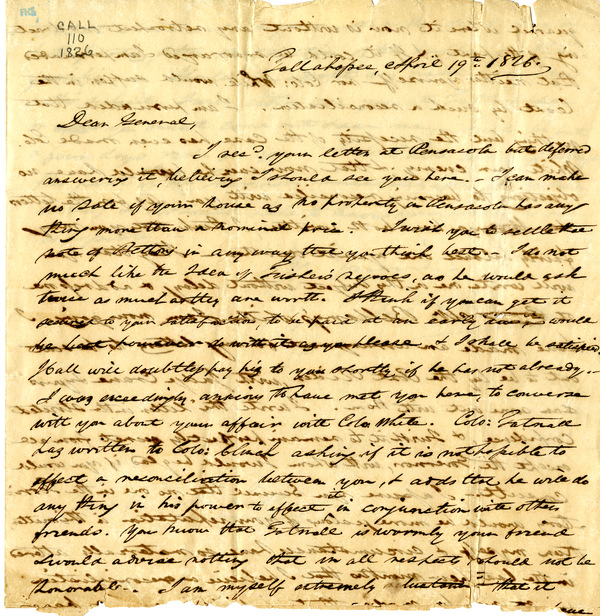 CALL
110
1826
Tallahassee, April 19th. 1826.
Dear General,
I recd. your letter at Pensacola but deferred
answering it, believing I should see you here. – I can make
no sale of your house as no property in Pensacola has any
thing more than a nominal price. I wish you to settle the
note of in any way that you think best. – I do not
much like the Idea of negroes, as he would ask
twice as much as they are worth. I think if you can get it
secured to your satisfaction, to be paid at an early day, would
be best, however do with it as you please & I shall be satisfied.
Hall will doubtless pay his to you shortly, if he has not already. –
I was exceedingly anxious to have met you here, to converse
with you about your affair with Colo. White. Colo: Gatnall
has written to Colo: Clinch asking if it is not possible to
effect a reconciliation between you, & adds that he will do
any thing in his power to effect it in conjunction with other
friends. You know that Gatnall is warmly your friend
& would advise nothing that in all respects should not be
honorable. I am myself extremely that it